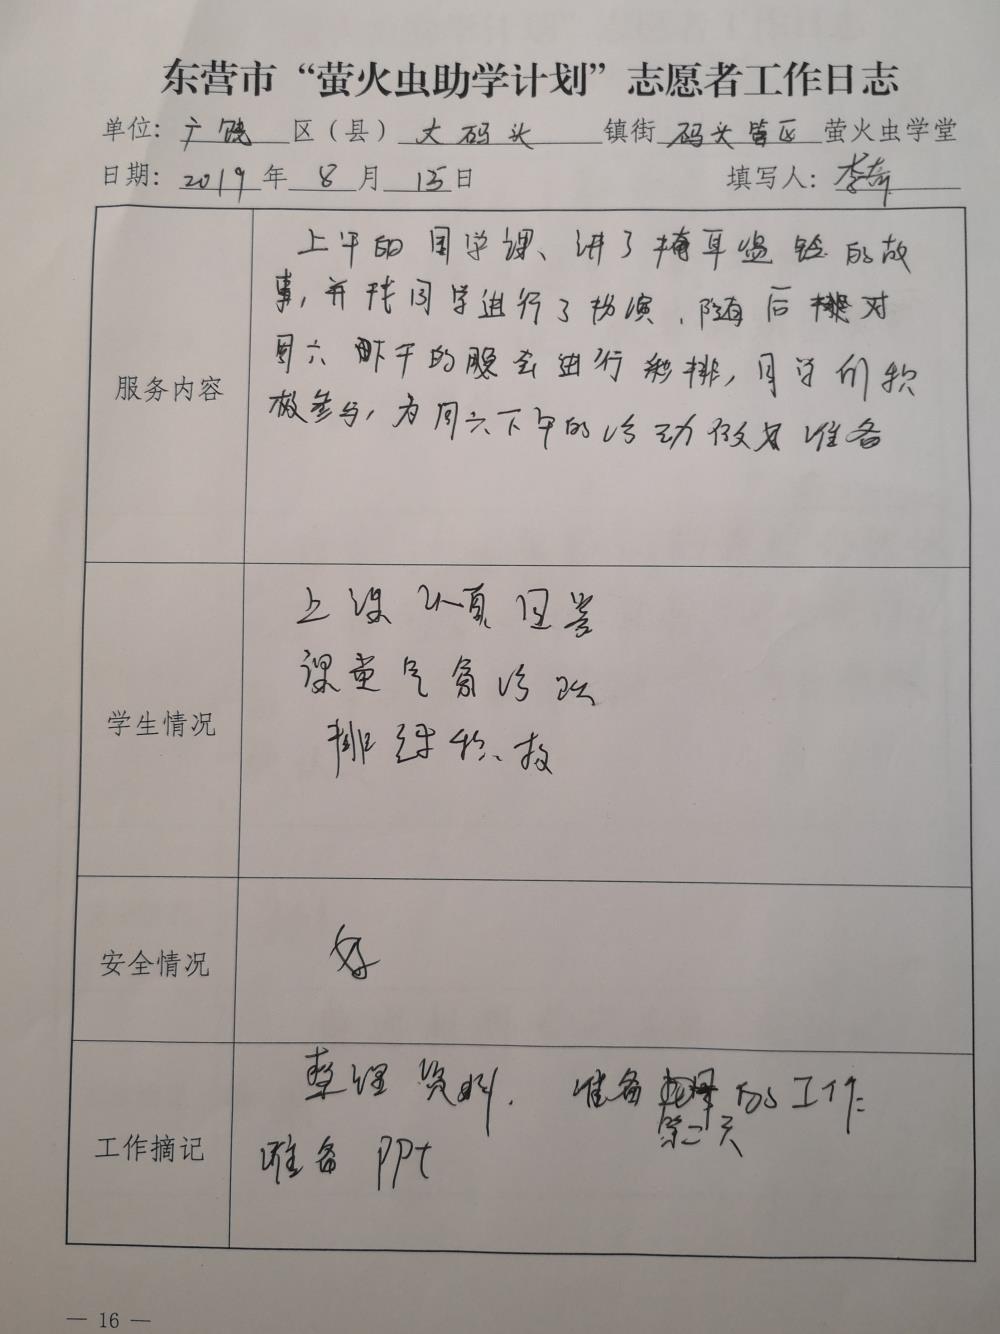 东营市“萤火虫助学计划”志愿者工作日志
单位：广饶区（县）大码头镇街码头管区萤火虫学堂
日期：2019年8月15日 填写人：李奇
服务内容
上午的国学课、讲了掩耳盗铃的故
事，并找同学进行了扮演，随后对
周六下午的晚会进行彩排，同学们积
极参与，为周六下午的活动做好准备
学生情况
上课认真回答
课堂气氛活跃
排练积极
安全情况
好
工作摘记
整理资料，准备第二天的工作
准备PPt
— 16 —